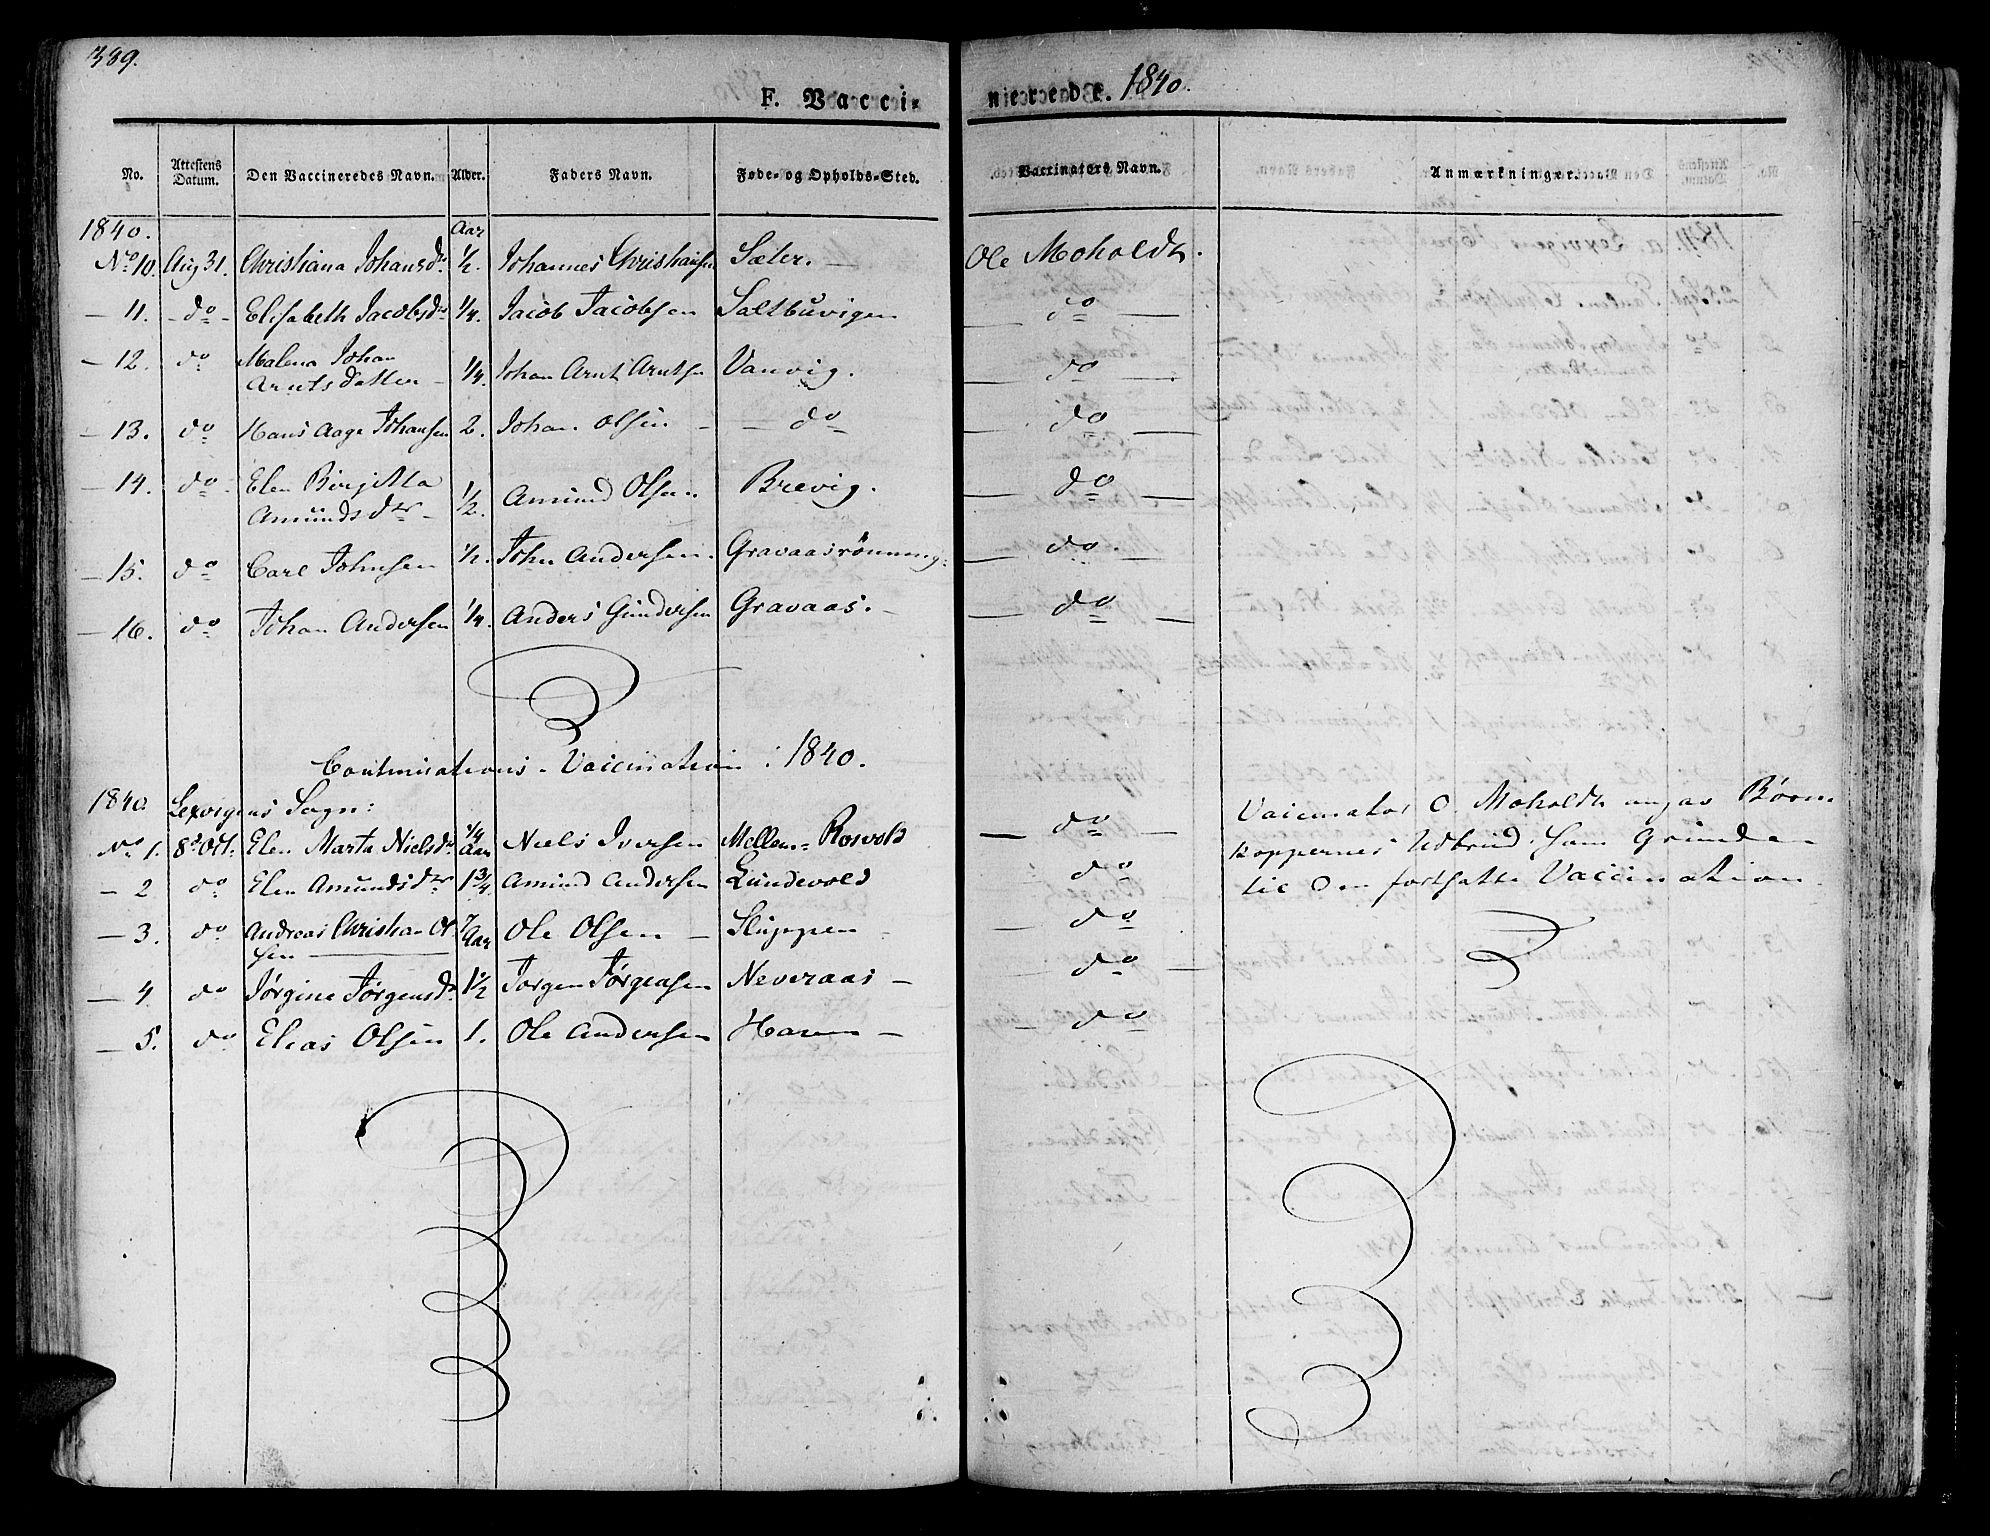 389.
F. Vacci-
nerede. 1840.
No. Attestens Datum. Den Vaccineredes Navn. Alder. Faders Navn. Føde- og Opholds-Sted. Vaccinators Navn. Anmærkninger.
1840. Aar
No 10. Aug 31. Christiana Johansdr 1/2. Johannes Christiansen Sæter. Ole Moholdt.
— 11. do Elisabeth Jacobsdr 1/4. Jacob Jacobsen Saltbuvigen do
— 12. do Malena Johan
Arntsdatter 1/4. Johan Arnt Arntsen Vanvig. do
— 13. do Hans Aage Johansen 2. Johan Olsen do do
— 14. do Elen Birgitta
Amundsdtr 1/2. Amund Olsen Brevig. do
— 15. do Carl Johnsen 1/2. John Andersen. Gravaasrönning. do.
— 16. do Johan Andersen 1/4. Anders Gundersen Gravaas. do
Continuations-Vaccination: 1840.
1840. Lexvigens Sogn:
No 1. 8d Oct: Elen Marta Nielsdr 1/4 Aar Niels Iversen Mellem-Rosvold do
— 2 do Elen Amundsdtr 1 3/4 Amund Andersen Lundevold do
— 3. do Andreas Christian Ol-
sen Aar Ole Olsen — do
— 4 do Jørgine Jørgensdr 1 1/2 Jørgen Jørgensen Neveraas — do
— 5. do Elias Olsen 1. Ole Andersen Haren — do
Vaccinator O. Moholdt angav Børne
koppernes Udbrud som Grunden
til den fortsatte Vaccination.